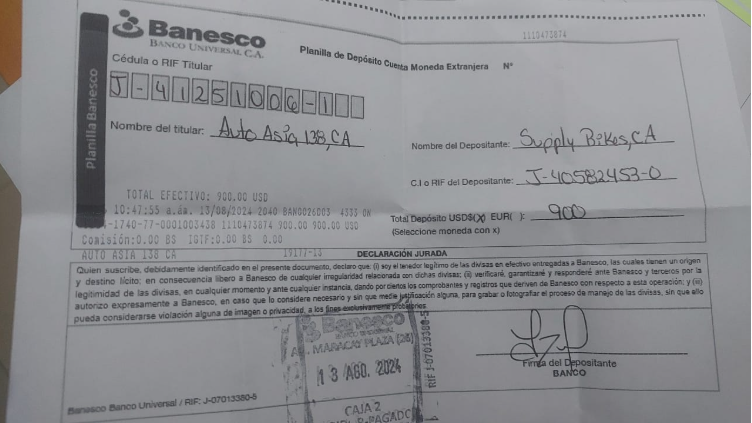 Banesco
BANCO UNIVERSAL C.A.
Planilla de Depósito Cuenta Moneda Extranjera N°
1110473874
Planilla Banesco
Cédula o RIF Titular
J-41251006-1
Nombre del titular: Auto Asia 138, CA
Nombre del Depositante: Supply Bikes, CA
C.I o RIF del Depositante: J-40582453-0
TOTAL EFECTIVO: 900.00 USD
10:47:55 a.m. 13/08/2024 2040 BAN0026003 4333 ON
Total Depósito USD$(X) EUR( ): 900
(Seleccione moneda con x)
-1740-77-0001003438 1110473874 900.00 900.00 USD
Comisión:0.00 BS IGTF:0.00 BS 0.00
AUTO ASIA 138 CA
DECLARACIÓN JURADA
Quien suscribe, debidamente identificado en el presente documento, declaro que: (i) soy el tenedor legítimo de las divisas en efectivo entregadas a Banesco, las cuales tienen un origen
y destino lícito; en consecuencia libero a Banesco de cualquier irregularidad relacionada con dichas divisas: (ii) verificaré, garantizaré y responderé ante Banesco y terceros por la
legitimidad de las divisas, en cualquier momento y ante cualquier instancia, dando por ciertos los comprobantes y registros que deriven de Banesco con respecto a esta operación; y (iii)
autorizo expresamente a Banesco, en caso que lo considere necesario y sin que medie justificación alguna, para grabar o fotografiar el proceso de manejo de las divisas, sin que ello
pueda considerarse violación alguna de imagen o privacidad, a los fines exclusivamente probatorios.
Banesco
BANCO UNIVERSAL
AV. MARACAY PLAZA
13 AGO. 2024
RIF J-07013380-5
CAJA 2
Firma del Depositante
BANCO
Banesco Banco Universal / RIF: J-07013380-5